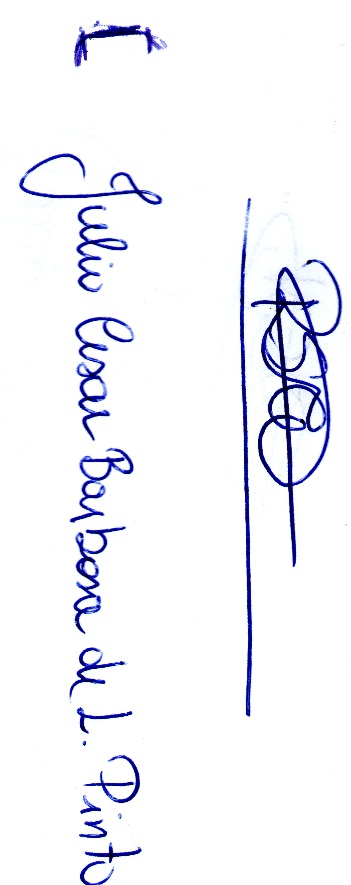 Julio Cesar Barbosa de L. Pinto